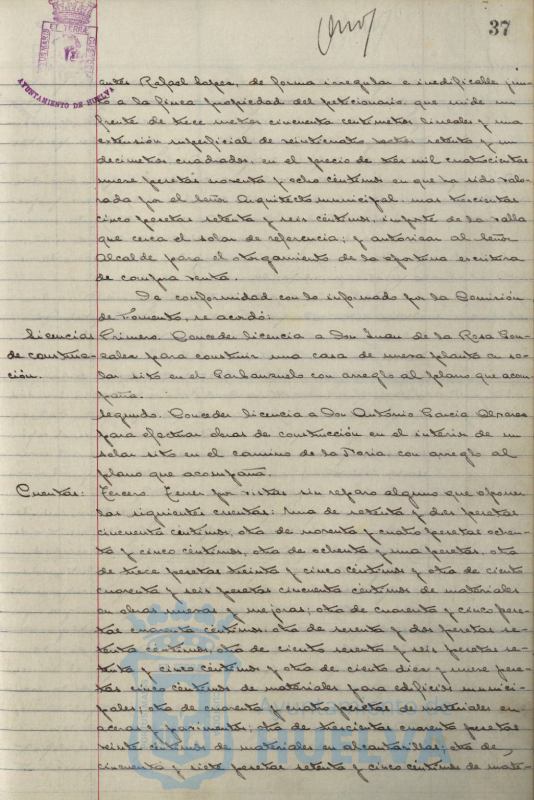 37
AYUNTAMIENTO DE HUELVA
antes Rafael López, de forma irregular e inedificable jun-
to a la finca propiedad del peticionario, que mide un
frente de trece metros cincuenta centímetros lineales y una
extensión superficial de veinticuatro metros setenta y un
decímetros cuadrados, en el precio de tres mil cuatrocientas
nueve pesetas noventa y ocho céntimos en que ha sido valo-
rada por el Señor Arquitecto municipal, mas trescientas
cinco pesetas setenta y seis céntimos, importe de la valla
que cerca el solar de referencia; y autorizar al Señor
Alcalde para el otorgamiento de la oportuna escritura
de compra venta.
De conformidad con lo informado por la Comisión
de Fomento, se acordó:
Licencias
de construc-
ción.
Primero. Conceder licencia a Don Juan de la Rosa Gon-
zalez para construir una casa de nueva planta en so-
lar sito en el Garbanzuelo con arreglo al plano que acom-
paña.
Segundo. Conceder licencia a Don Antonio Garcia Alvarez
para efectuar obras de construcción en el interior de un
solar sito en el camino de la Noria con arreglo al
plano que acompaña.
Cuentas:
Tercero. Tener por vistas sin reparo alguno que oponer
las siguientes cuentas: Una de setenta y dos pesetas
cincuenta céntimos, otra de noventa y cuatro pesetas ochen-
ta y cinco céntimos, otra de ochenta y una pesetas, otra
de trece pesetas treinta y cinco céntimos y otra de ciento
cuarenta y seis pesetas cincuenta céntimos de materiales
en obras nuevas y mejoras; otra de cuarenta y cinco pese-
tas cuarenta céntimos, otra de sesenta y dos pesetas se-
tenta céntimos, otra de ciento sesenta y seis pesetas se-
tenta y cinco céntimos y otra de ciento diez y nueve pese-
tas cinco céntimos de materiales para edificios munici-
pales; otra de cuarenta y cuatro pesetas de materiales en
aceras y pavimentos; otra de trescientas cuarenta pesetas
veinte céntimos de materiales en alcantarillas; otra de
cincuenta y siete pesetas setenta y cinco céntimos de mate-
HUELVA